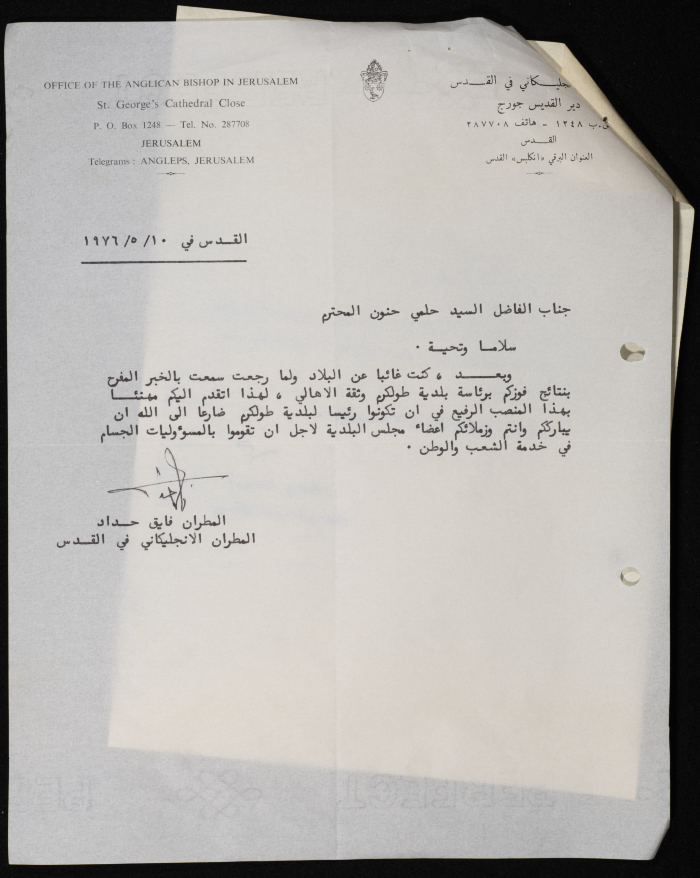 OFFICE OF THE ANGLICAN BISHOP IN JERUSALEM
St. George's Cathedral Close
P. O. Box 1248 — Tel. No. 287708
JERUSALEM
Telegrams : ANGLEPS, JERUSALEM
في القــدس
دير القديس جورج
ص.ب ١٢٤٨ - هاتف ٢٨٧٧٠٨
القــدس
العنوان البرقي «انكلبس» القدس
القــدس في ١٠/ ٥/ ١٩٧٦
جناب الفاضل السيد حلمي حنون المحترم
سلامــا وتحيــة ٠
وبعــــد ، كنت غائبا عن البلاد ولما رجعت سمعت بالخبر المفرح
بنتائج فوزكم برئاسة بلدية طولكرم وثقة الاهالي ، لهذا اتقدم اليكم مهنئــا
بهذا المنصب الرفيع في ان تكونوا رئيسا لبلدية طولكرم ضارعا الى الله ان
يبارككم وانتم وزملائكم اعضاء مجلس البلدية لاجل ان تقوموا بالمسؤوليات الجسام
في خدمة الشعب والوطن ٠
المطران فايق حــداد
المطران الانجليكاني في القــدس